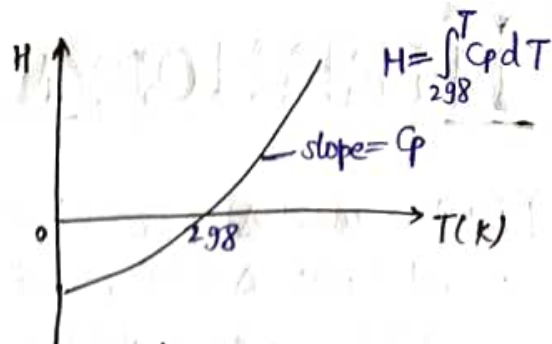 H
H = ∫²⁹⁸ᵀ Cp dT
slope = Cp
0
298
T(K)